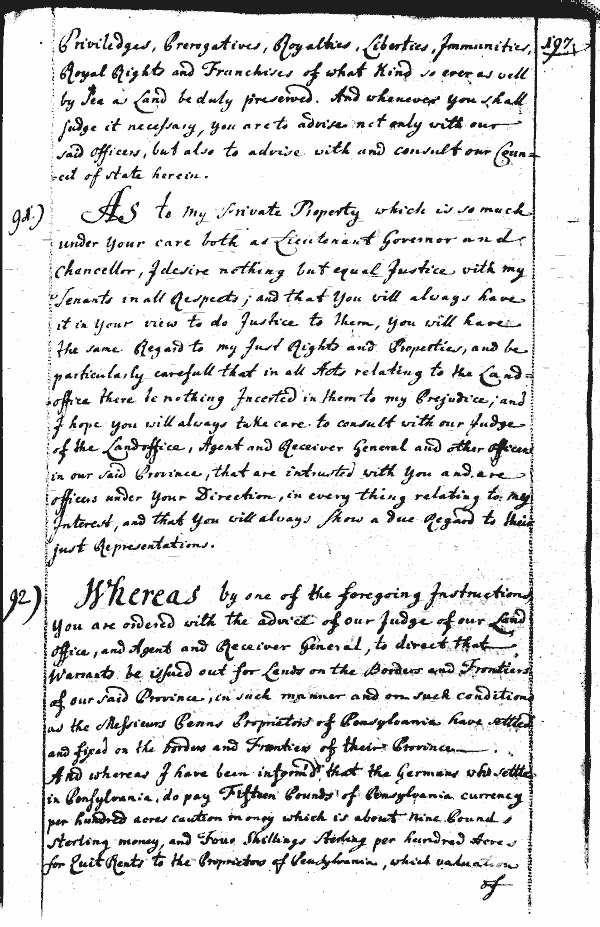 197.
Priviledges, Prerogatives, Royalties, Liberties, Immunities,
Royal Rights and Franchises of what Kind so ever as well
by Sea as Land be duly preserved. And whenever you shall
judge it necessary, you are to advise not only with our
said Officers, but also to advise with and consult our Coun=
=cil of state herein.
91.) As to my Private Property which is so much
under your care both as Lieutenant Governor and
Chancellor, I desire nothing but equal Justice with my
Tenants in all Respects; and that You will always have
it in Your view to do Justice to them, you will have
the same Regard to my Just Rights and Properties, and be
particularly carefull that in all Acts relating to the Land=
=office there be nothing Incerted in them to my Prejudice; and
I hope you will always take care to consult with our Judge
of the Landoffice, Agent and Receiver General and other Officers
in our said Province, that are intrusted with You and are
officers under Your Direction, in every thing relating to my
Interest, and that You will always Show a due Regard to their
just Representations.
92) Whereas by one of the foregoing Instructions
You are ordered with the advice of our Judge of our Land
Office, and Agent and Receiver General, to direct that
Warrants be issued out for Lands on the Borders and Frontiers
of our said Province, in such manner and on such conditions
as the Messieurs Penns Proprietors of Pensylvania have settled
and fixed on the borders and Frontiers of their Province
And whereas I have been inform'd that the Germans who settle
in Pensylvania, do pay Fifteen Pounds of Pensylvania currency
per hundred acres caution money which is about Nine Pounds
Sterling money, and Four Shillings Sterling per hundred Acres
for Quit Rents to the Proprietors of Pensylvania, which valuation
of